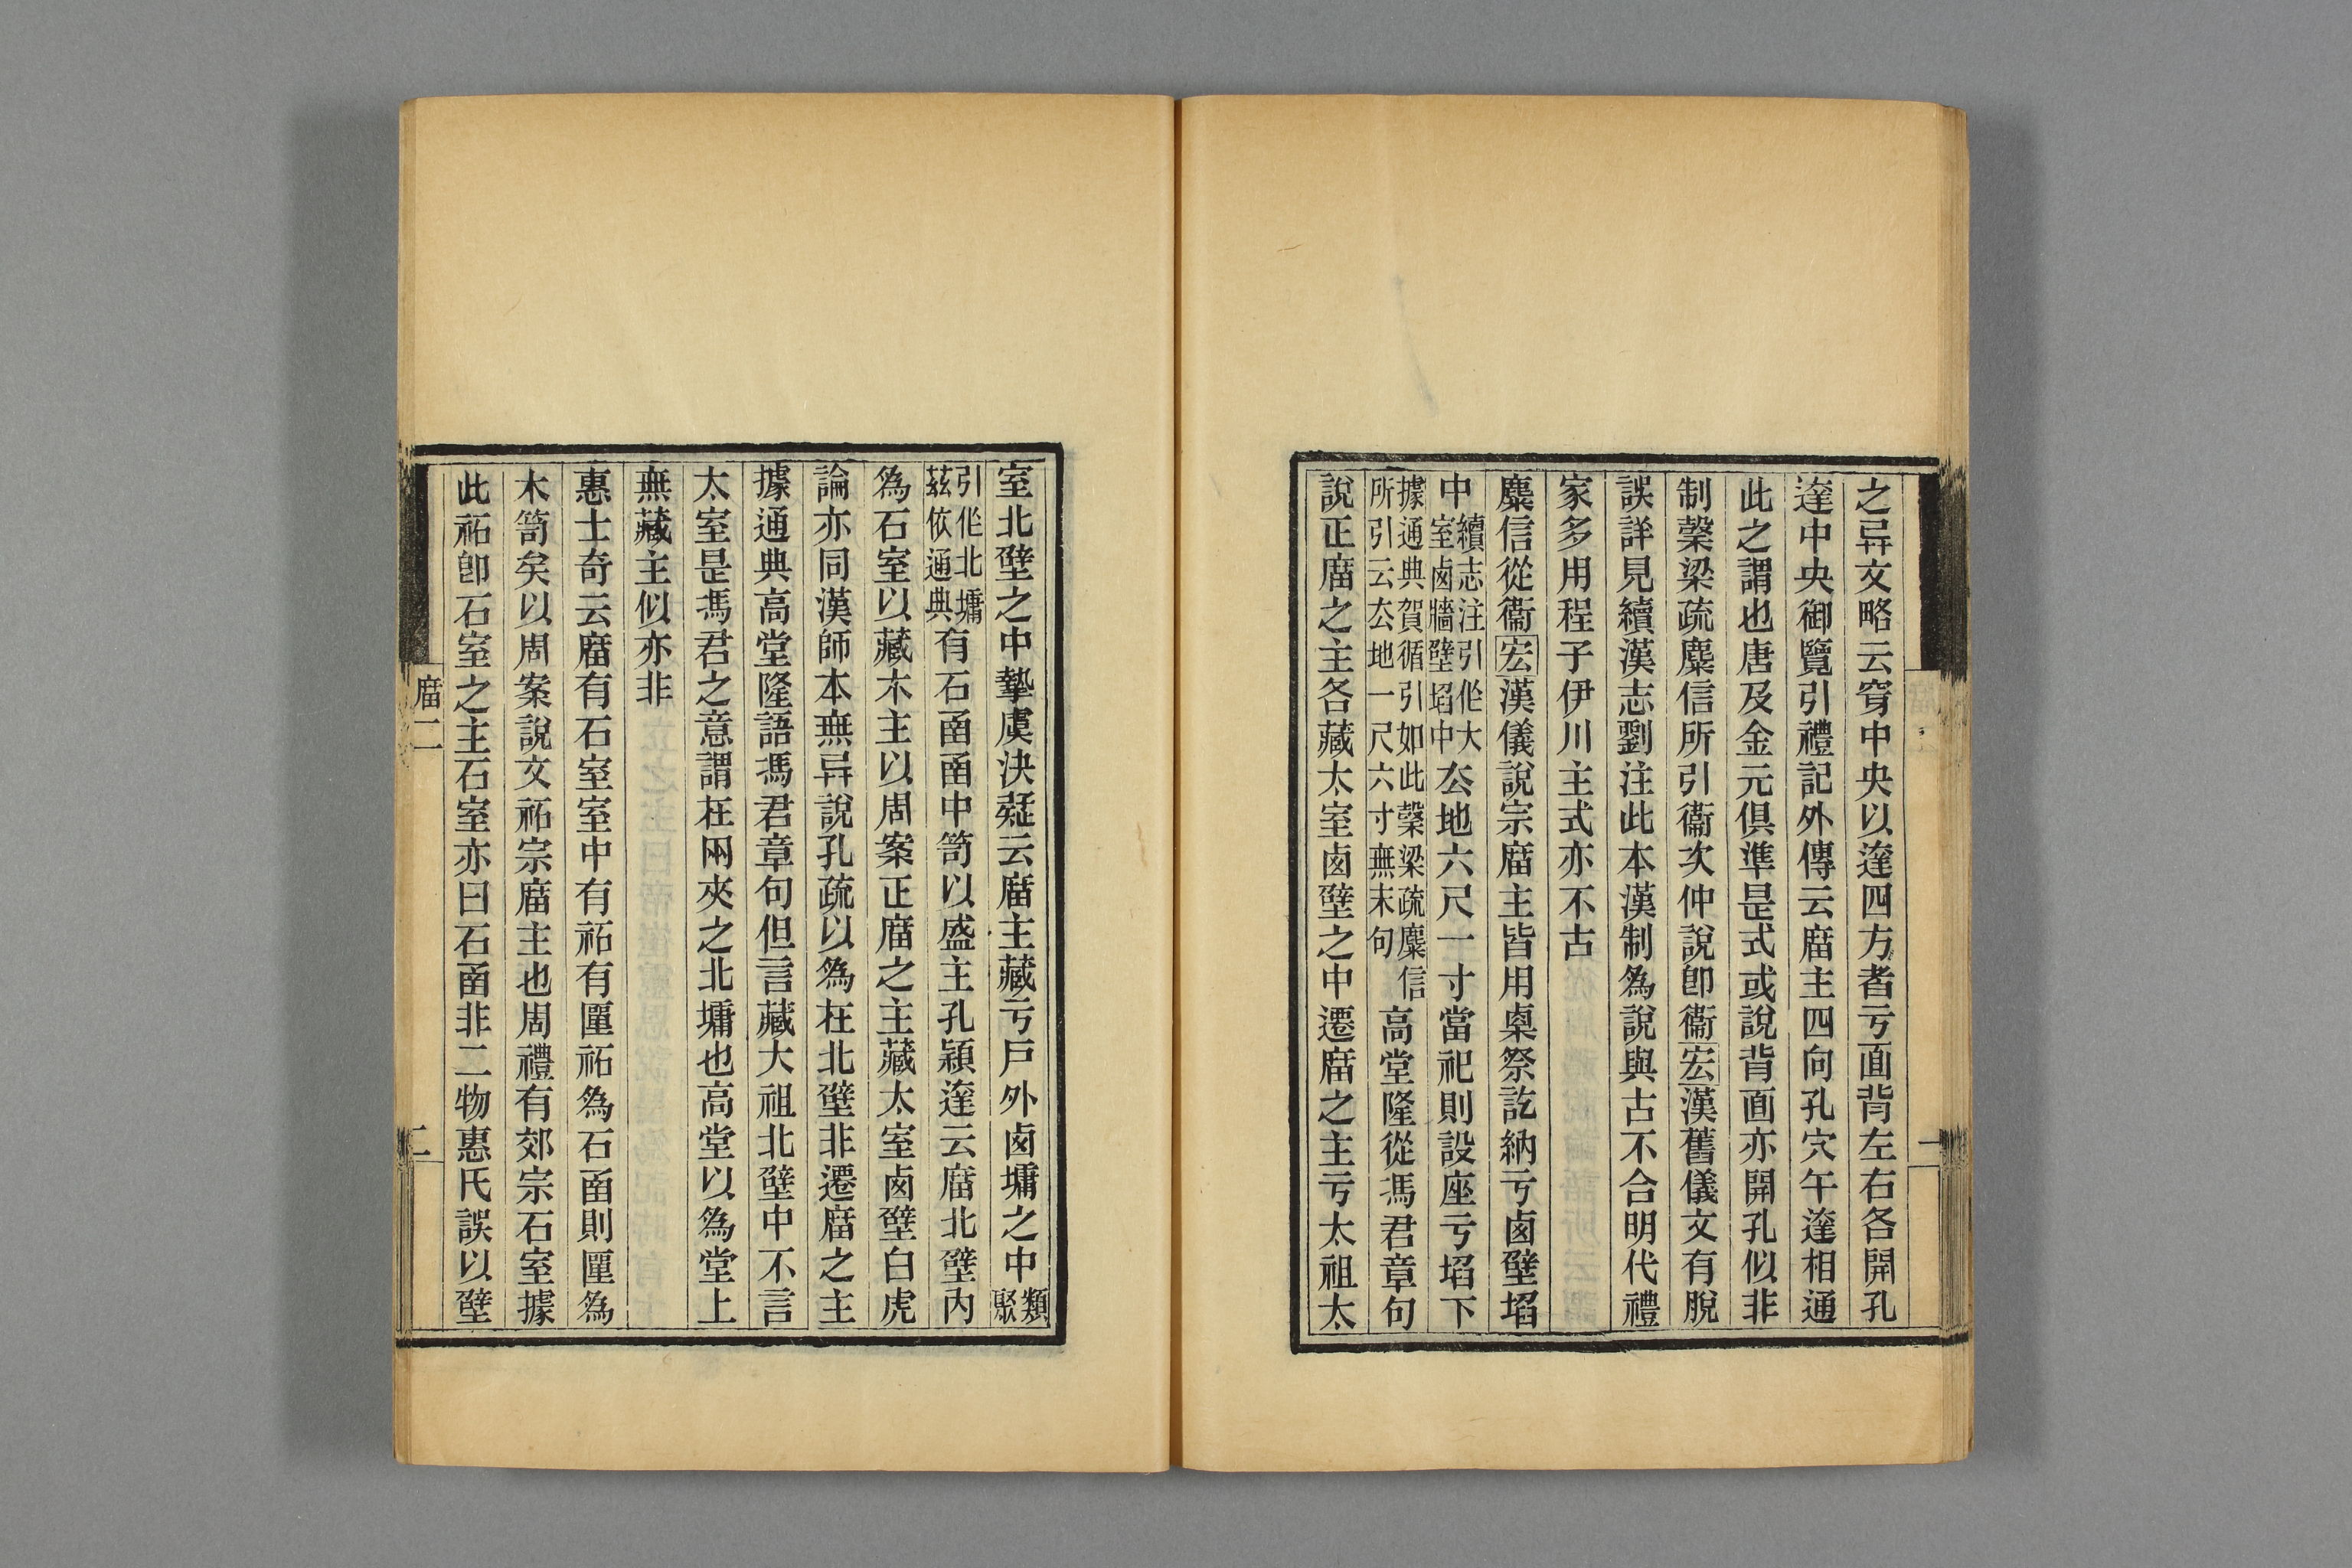 之异文略云穿中央以達四方者亏面背左右各開孔
達中央御覽引禮記外傳云庿主四向孔穴午達相通
此之謂也唐及金元俱準是式或說背面亦開孔似非
制榖梁疏麋信所引衞次仲說卽衞宏漢舊儀文有脫
誤詳見續漢志劉注此本漢制為說與古不合明代禮
家多用程子伊川主式亦不古
麋信從衞宏漢儀說宗庿主皆用㮚祭訖納亏卤壁埳
中續志注引作大室卤牆壁埳中厺地六尺一寸當祀則設座亏埳下
據通典賀循引如此榖梁疏麋信所引云厺地一尺六寸無末句高堂隆從馮君章句
說正庿之主各藏太室卤壁之中遷庿之主亏太祖太
室北壁之中摯虞決疑云庿主藏亏戶外卤墉之中類聚
引作北墉茲依通典有石函函中笥以盛主孔穎達云庿北壁內
為石室以藏木主以周案正庿之主藏太室卤壁白虎
論亦同漢師本無异說孔疏以為在北壁非遷庿之主
據通典高堂隆語馮君章句但言藏大祖北壁中不言
太室是馮君之意謂在兩夾之北墉也高堂以為堂上
無藏主似亦非
惠士奇云庿有石室室中有祏有匰祏為石函則匰為
木笥矣以周案說文祏宗庿主也周禮有郊宗石室據
此祏卽石室之主石室亦曰石函非二物惠氏誤以壁
庿二
二